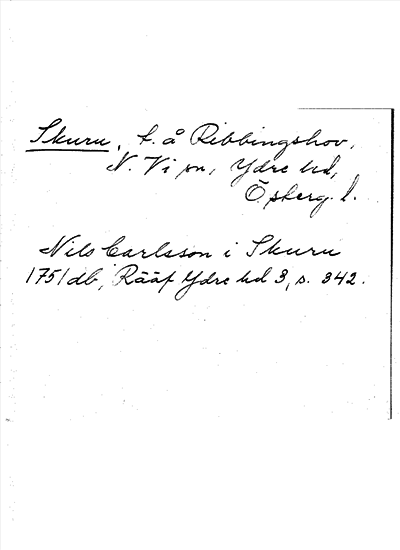 Skuru, t. å Ribbingshov,
N. Vi sn, Ydre hd,
Ö
Nils Carlsson i Skuru
1751 db, Rääf Ydre hd 3, s. 342.